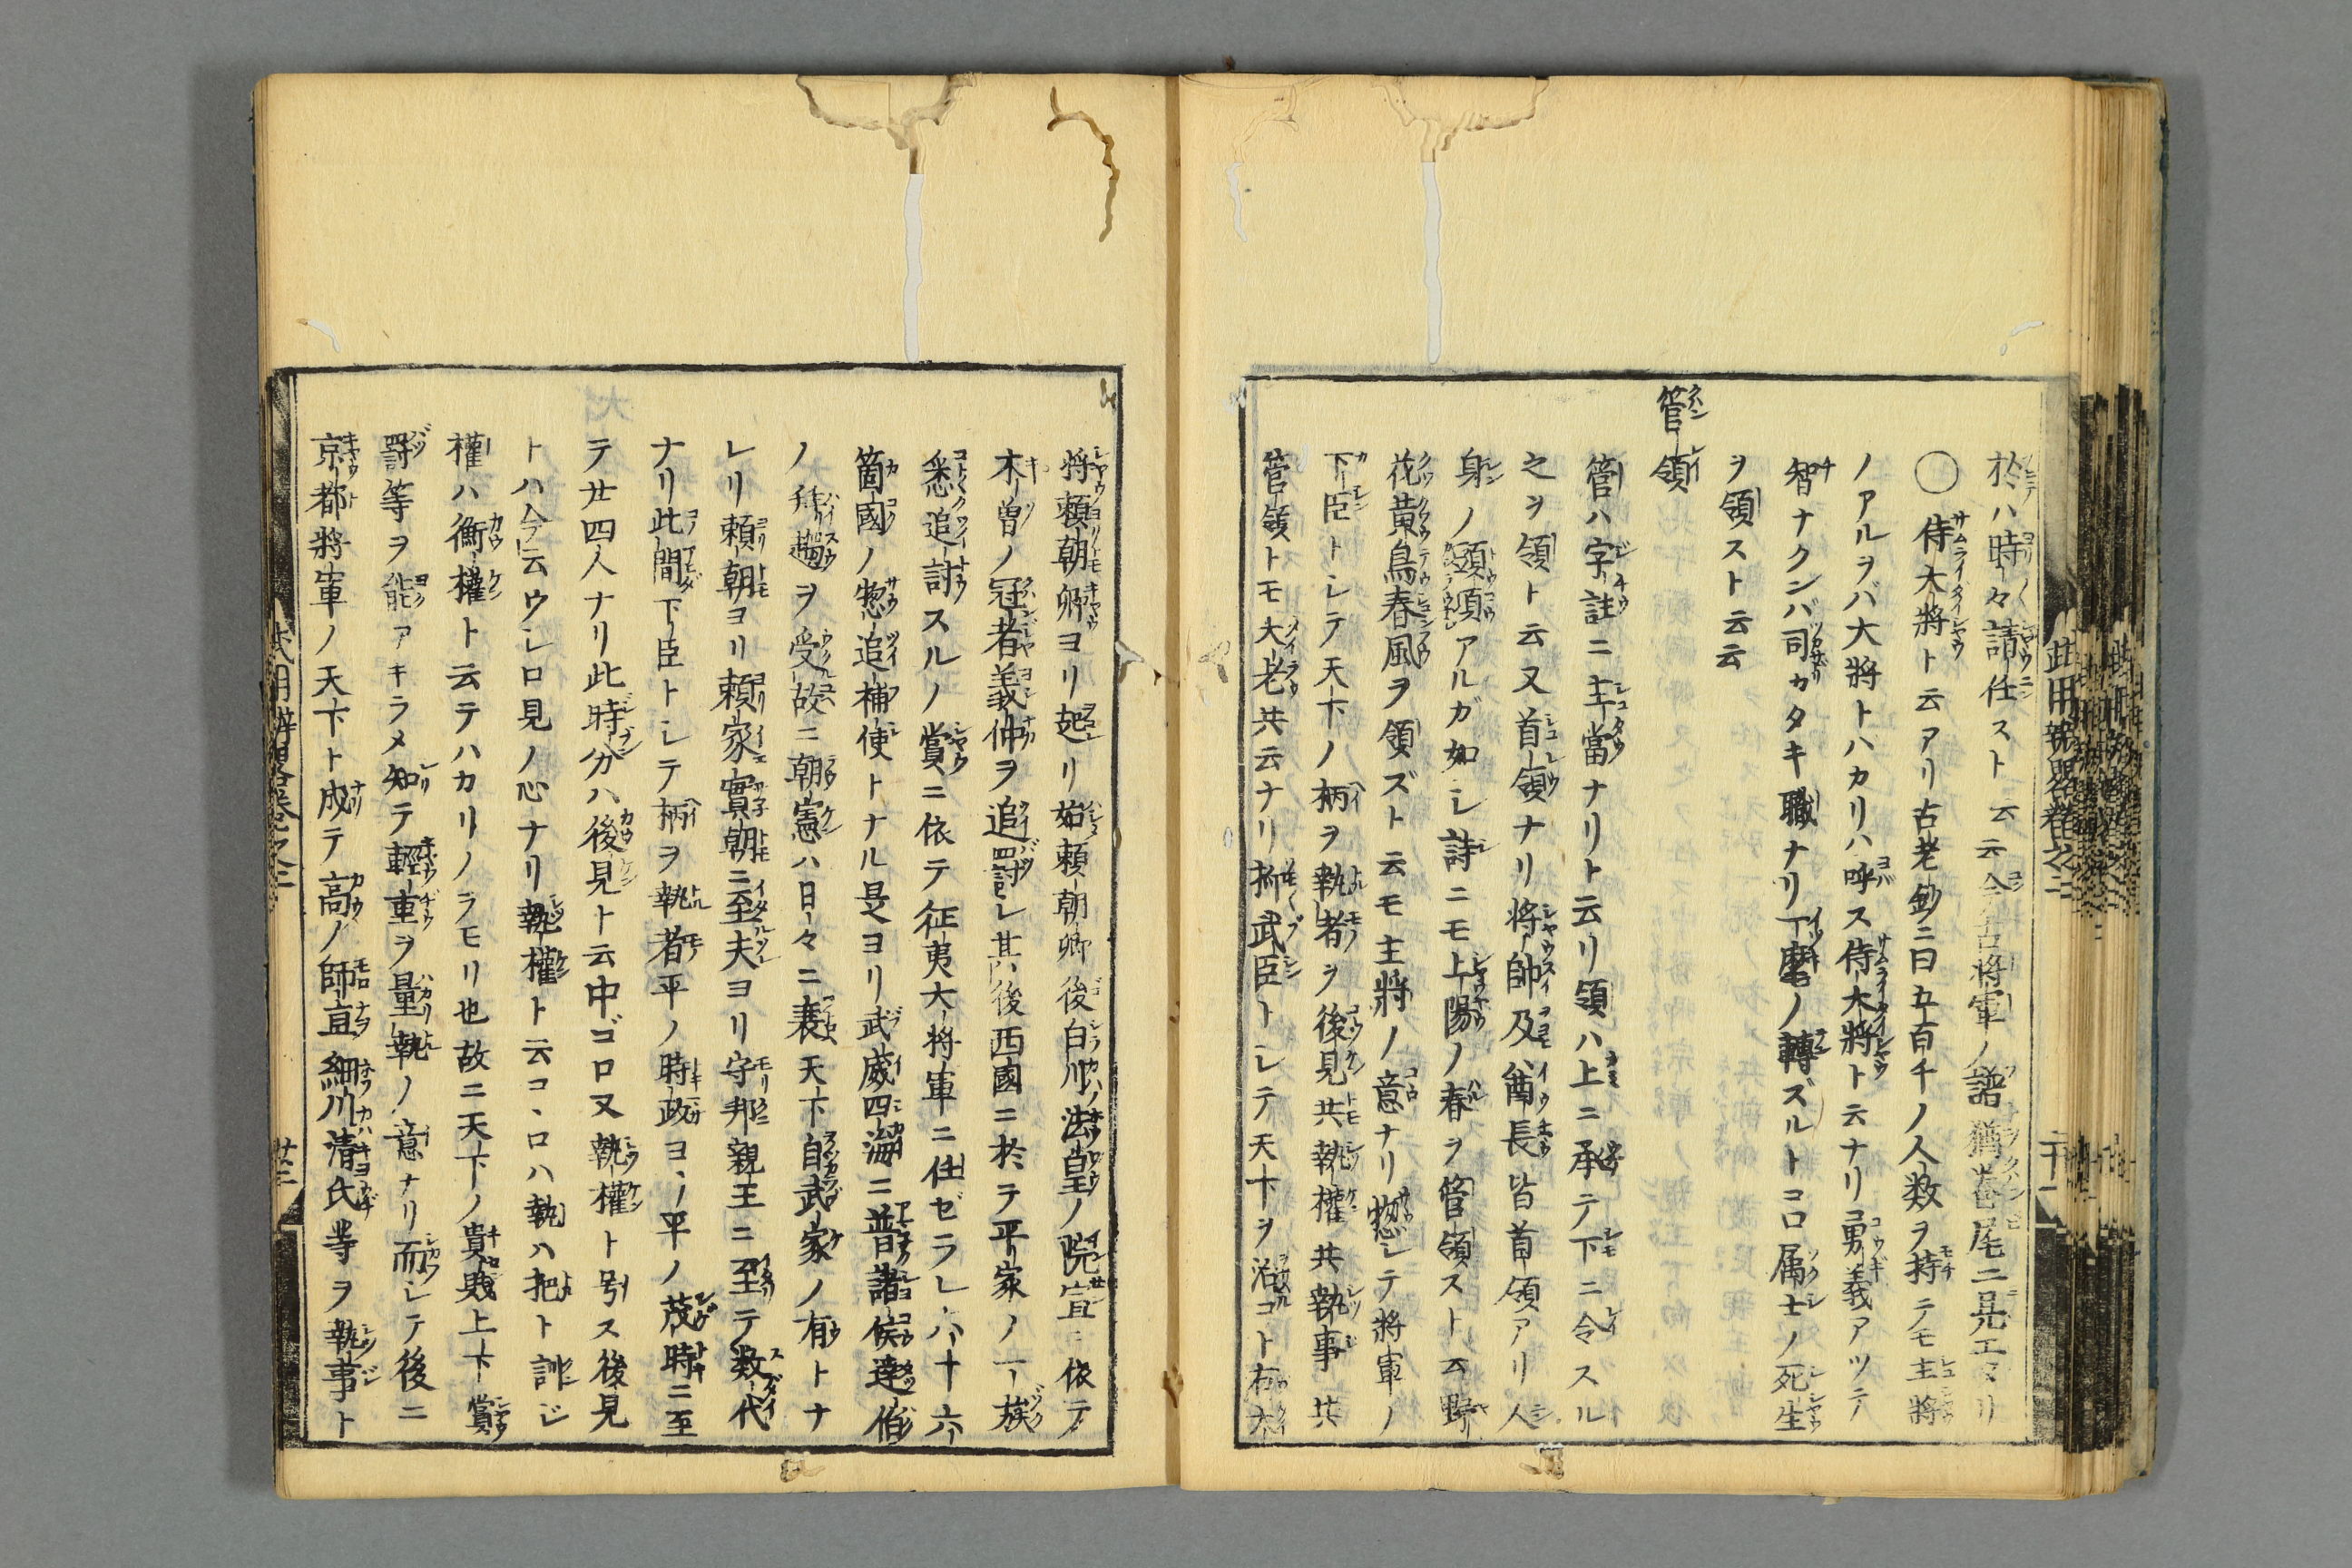 於ハ時々請任スト云云今古將軍ノ譜猶舊尾ニ見エタリ
○侍大將ト云アリ古老鈔ニ曰五百千ノ人数ヲ持テモ主將
ノアルヲバ大將トハカリハ呼ス侍大將ト云ナリ勇義アツテ
智ナクンバ司カタキ職ナリ一麾ノ轉ズルトコロ属士ノ死生
ヲ領スト云云
管領
管ハ字註ニ主當ナリト云リ領ハ上ニ承テ下ニ令スル
之ヲ領ト云又首領ナリ將帥及ヒ酋長皆首領アリ人
身ノ頭項アルガ如シ詩ニモ上陽ノ春ヲ管領スト云野
花黄鳥春風ヲ領ズト云モ主將ノ意ナリ惣シテ將軍ノ
下臣トシテ天下ノ柄ヲ執者ヲ後見共執權共執事共
管領トモ大老共云ナリ抑武臣トシテ天下ヲ治コト右大
將頼朝卿ヨリ起リ始頼朝卿後白川ノ法皇ノ院宣ニ依テ
木曽ノ冠者義仲ヲ追罰シ其後西國ニ於テ平家ノ一族
悉追討スルノ賞ニ依テ征夷大將軍ニ任ゼラレ六十六
箇國ノ惣追補使トナル是ヨリ武威四海ニ普諸侯達伯
ノ拜趨ヲ受故ニ朝憲ハ日々ニ衰天下自武家ノ有トナ
レリ頼朝ヨリ頼家實朝ニ至夫ヨリ守邦親王ニ至テ数代
ナリ此間下臣トシテ柄ヲ執者平ノ時政ヨリ平ノ茂時ニ至
テ廿四人ナリ此時分ハ後見ト云中ゴロ又執權ト号ス後見
トハ今云ウシロ見ノ心ナリ執權ト云コヽロハ執ハ把ト訓ジ
權ハ衡權ト云テハカリノヲモリ也故ニ天下ノ貴賎上下賞
罸等ヲ能アキラメ知テ輕重ヲ量執ノ意ナリ而シテ後ニ
京都將軍ノ天下ト成テ高ノ師直細川清氏等ヲ執事ト